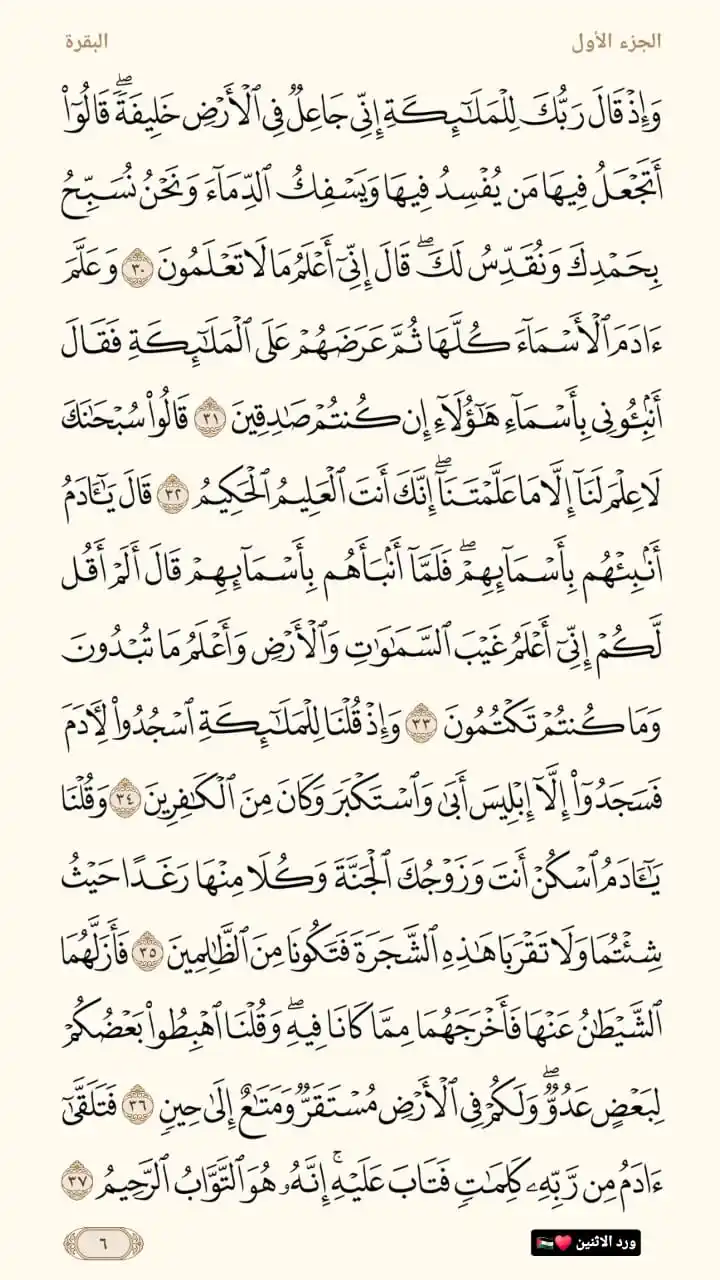 الجزء الأول
البقرة
وَإِذْ قَالَ رَبُّكَ لِلْمَلَٰٓئِكَةِ إِنِّى جَاعِلٌ فِى ٱلْأَرْضِ خَلِيفَةً ۖ قَالُوٓا۟
أَتَجْعَلُ فِيهَا مَن يُفْسِدُ فِيهَا وَيَسْفِكُ ٱلدِّمَآءَ وَنَحْنُ نُسَبِّحُ
بِحَمْدِكَ وَنُقَدِّسُ لَكَ ۖ قَالَ إِنِّىٓ أَعْلَمُ مَا لَا تَعْلَمُونَ ٣٠ وَعَلَّمَ
ءَادَمَ ٱلْأَسْمَآءَ كُلَّهَا ثُمَّ عَرَضَهُمْ عَلَى ٱلْمَلَٰٓئِكَةِ فَقَالَ
أَنۢبِـُٔونِى بِأَسْمَآءِ هَٰٓؤُلَآءِ إِن كُنتُمْ صَٰدِقِينَ ٣١ قَالُوا۟ سُبْحَٰنَكَ
لَا عِلْمَ لَنَآ إِلَّا مَا عَلَّمْتَنَآ ۖ إِنَّكَ أَنتَ ٱلْعَلِيمُ ٱلْحَكِيمُ ٣٢ قَالَ يَٰٓـَٔادَمُ
أَنۢبِئْهُم بِأَسْمَآئِهِمْ ۖ فَلَمَّآ أَنۢبَأَهُم بِأَسْمَآئِهِمْ قَالَ أَلَمْ أَقُل
لَّكُمْ إِنِّىٓ أَعْلَمُ غَيْبَ ٱلسَّمَٰوَٰتِ وَٱلْأَرْضِ وَأَعْلَمُ مَا تُبْدُونَ
وَمَا كُنتُمْ تَكْتُمُونَ ٣٣ وَإِذْ قُلْنَا لِلْمَلَٰٓئِكَةِ ٱسْجُدُوا۟ لِءَادَمَ
فَسَجَدُوٓا۟ إِلَّآ إِبْلِيسَ أَبَىٰ وَٱسْتَكْبَرَ وَكَانَ مِنَ ٱلْكَٰفِرِينَ ٣٤ وَقُلْنَا
يَٰٓـَٔادَمُ ٱسْكُنْ أَنتَ وَزَوْجُكَ ٱلْجَنَّةَ وَكُلَا مِنْهَا رَغَدًا حَيْثُ
شِئْتُمَا وَلَا تَقْرَبَا هَٰذِهِ ٱلشَّجَرَةَ فَتَكُونَا مِنَ ٱلظَّٰلِمِينَ ٣٥ فَأَزَلَّهُمَا
ٱلشَّيْطَٰنُ عَنْهَا فَأَخْرَجَهُمَا مِمَّا كَانَا فِيهِ ۖ وَقُلْنَا ٱهْبِطُوا۟ بَعْضُكُمْ
لِبَعْضٍ عَدُوٌّ ۖ وَلَكُمْ فِى ٱلْأَرْضِ مُسْتَقَرٌّ وَمَتَٰعٌ إِلَىٰ حِينٍ ٣٦ فَتَلَقَّىٰٓ
ءَادَمُ مِن رَّبِّهِۦ كَلِمَٰتٍ فَتَابَ عَلَيْهِ ۚ إِنَّهُۥ هُوَ ٱلتَّوَّابُ ٱلرَّحِيمُ ٣٧
ورد الاثنين ❤️🇵🇸
٦